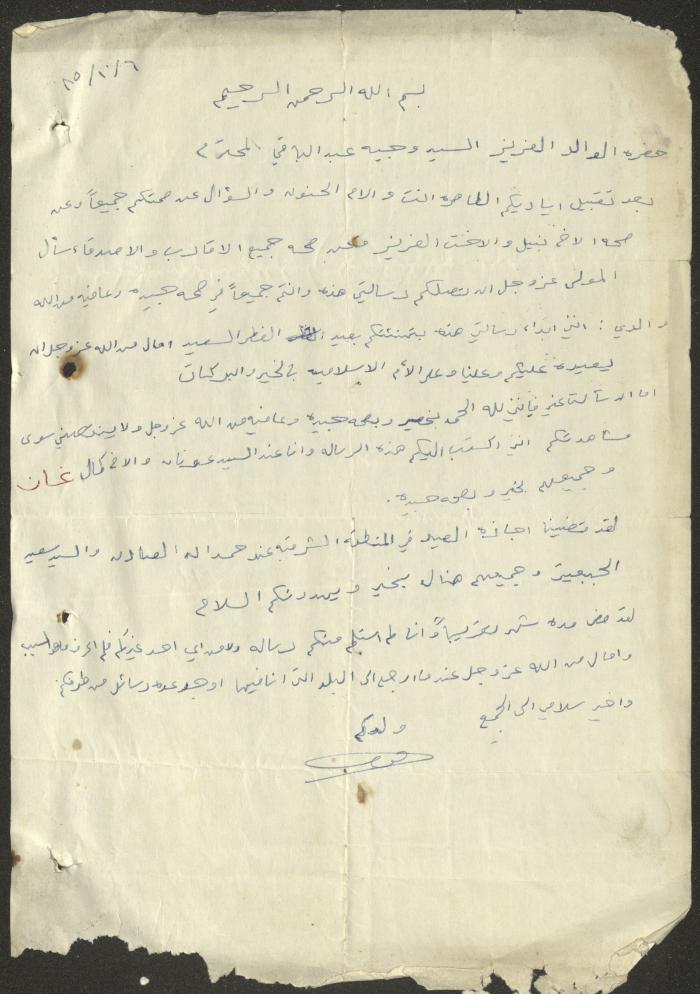 ٨٥/١٠/٦
بسم الله الرحمن الرحيم
حضرة الوالد العزيز السيد وجيه عبد الباقي المحترم
بعد تقبيل اياديكم الطاهرة انت والام الحنون والسؤال عن صحتكم جميعاً وعن
صحة الاخ نبيل والاخت العزيز وعن صحة جميع الاقارب والاصدقاء سأل
المولى عز وجل ان تصلكم رسالتي هذه وانتم جميعاً في صحه جيده وعافيه من الله
والدي : انني ابداء رسالتي هذه بتهنئتكم بعيد الفطر السعيد امال من الله عز وجل ان
يعيده عليكم وعلينا وعلى الأم الاسلاميه بالخير والبركات
اما ان سألت عني فإنني لله الحمد بخير وبصحه جيده وعافيه من الله عز وجل ولا ينقصني سوى
مشاهدتكم انني اكتب اليكم هذه الرساله وانا عند السيد عدنان والاخ كمال غسان
وجميعهم بخير وبصحه جيدة.
لقد قضينا اجازة الصيف في المنطقه الشرقيه عند حمدان والسيد سعيد
وجميعهم هناك بخير ويهدونكم السلام
لقد مضى مده شهر تقريباً وانا لم استلم منكم رساله ولا من اي احد غيركم فلم اعرف ما هو السبب
وامال من الله عز وجل عندما ارجع الى البلد التي انا فيها ان اجد عده رسائل من طرفكم
واخير سلامي الى الجميع
ولدكم